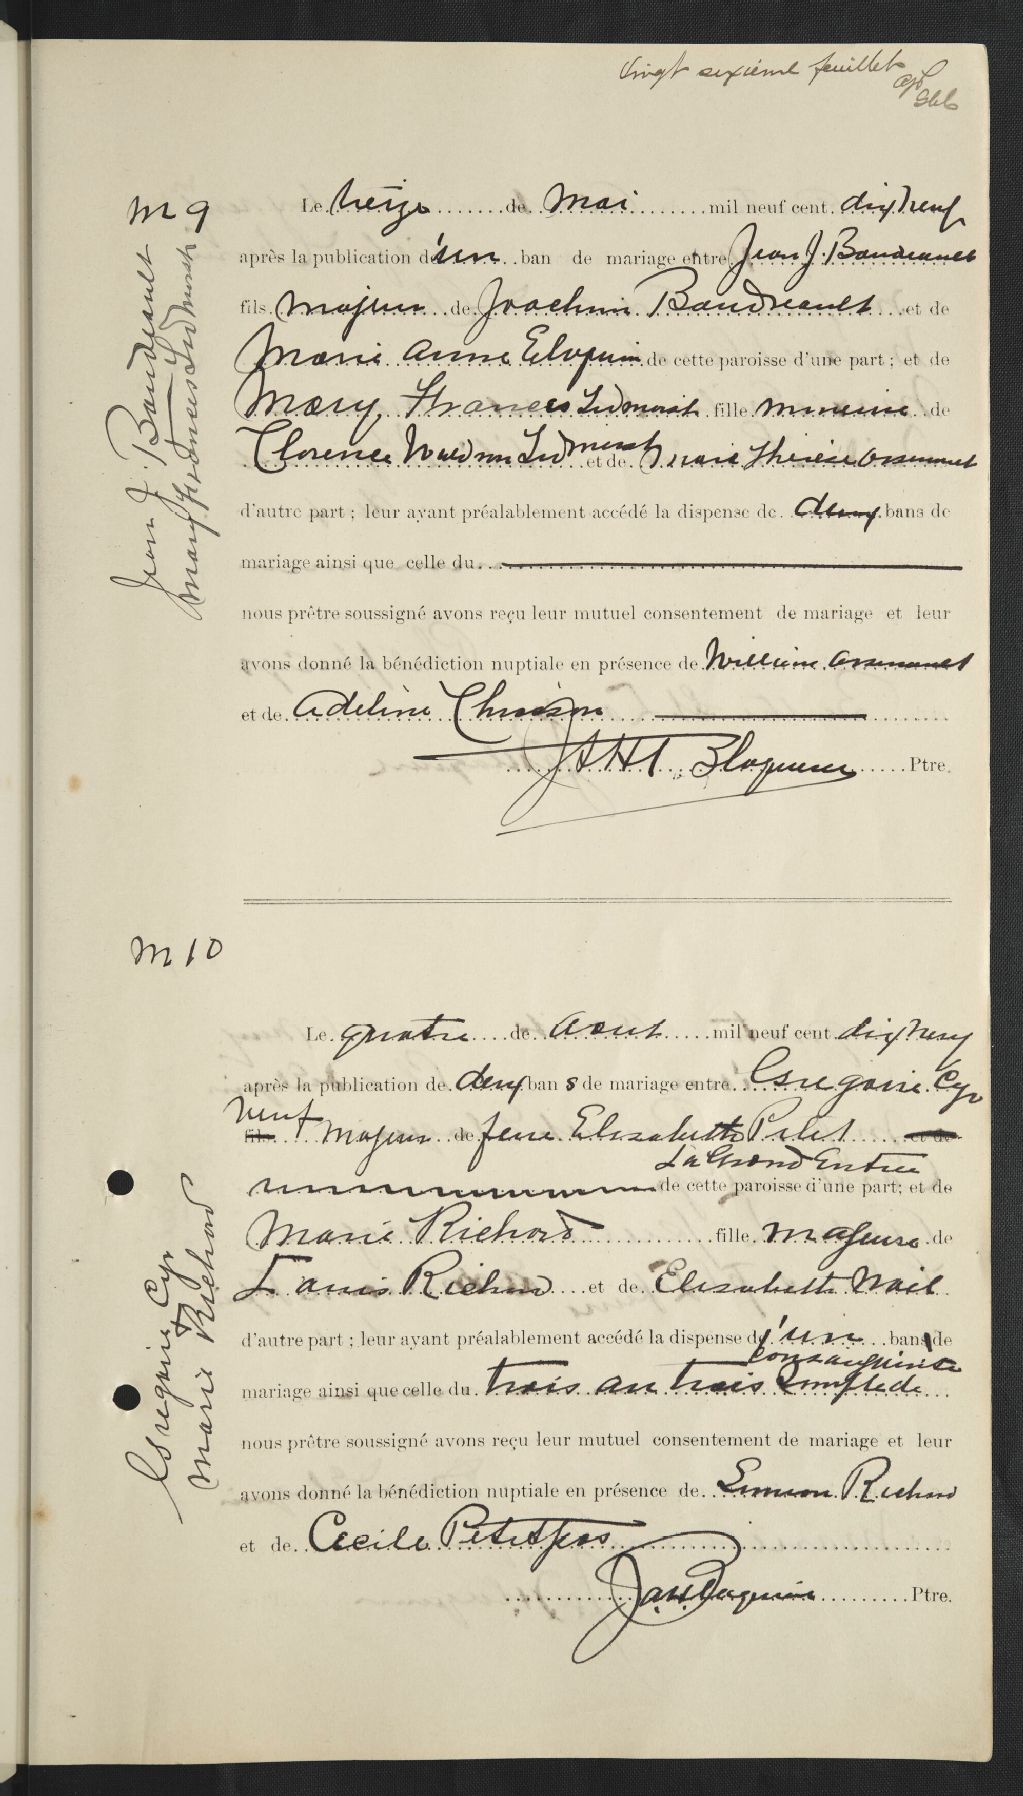 Vingt sixième feuillet
M 9
Jean J. Boudreault
Mary Frances Ledmorsh
Le treize de Mai mil neuf cent dix neuf
après la publication d'un ban de mariage entre Jean J. Boudreault
fils majeur de Joachim Boudreault et de
Marie Anne Eloquin de cette paroisse d'une part; et de
Mary Frances Ledmorsh fille mineure de
Clorence Ledmorsh et de Marie Thérèse Arsenault
d'autre part; leur ayant préalablement accédé la dispense de deux bans de
mariage ainsi que celle du
nous prêtre soussigné avons reçu leur mutuel consentement de mariage et leur
avons donné la bénédiction nuptiale en présence de William Arsenault
et de Adeline Chiasson
Ptre.
M 10
Gregoire Cyr
+
Marie Richard
Le quatre de Aout mil neuf cent dix neuf
après la publication de deux bans de mariage entre Gregoire Cyr
veuf
fils majeur de feue Elisabeth et de
La Grand Entree
de cette paroisse d'une part; et de
Marie Richard fille majeure de
Louis Richard et de Elisabeth
d'autre part; leur ayant préalablement accédé la dispense d'un bans de
consanguinité
mariage ainsi que celle du trois au trois de
nous prêtre soussigné avons reçu leur mutuel consentement de mariage et leur
avons donné la bénédiction nuptiale en présence de Simeon Richard
et de Cecile Petitpas
Ptre.